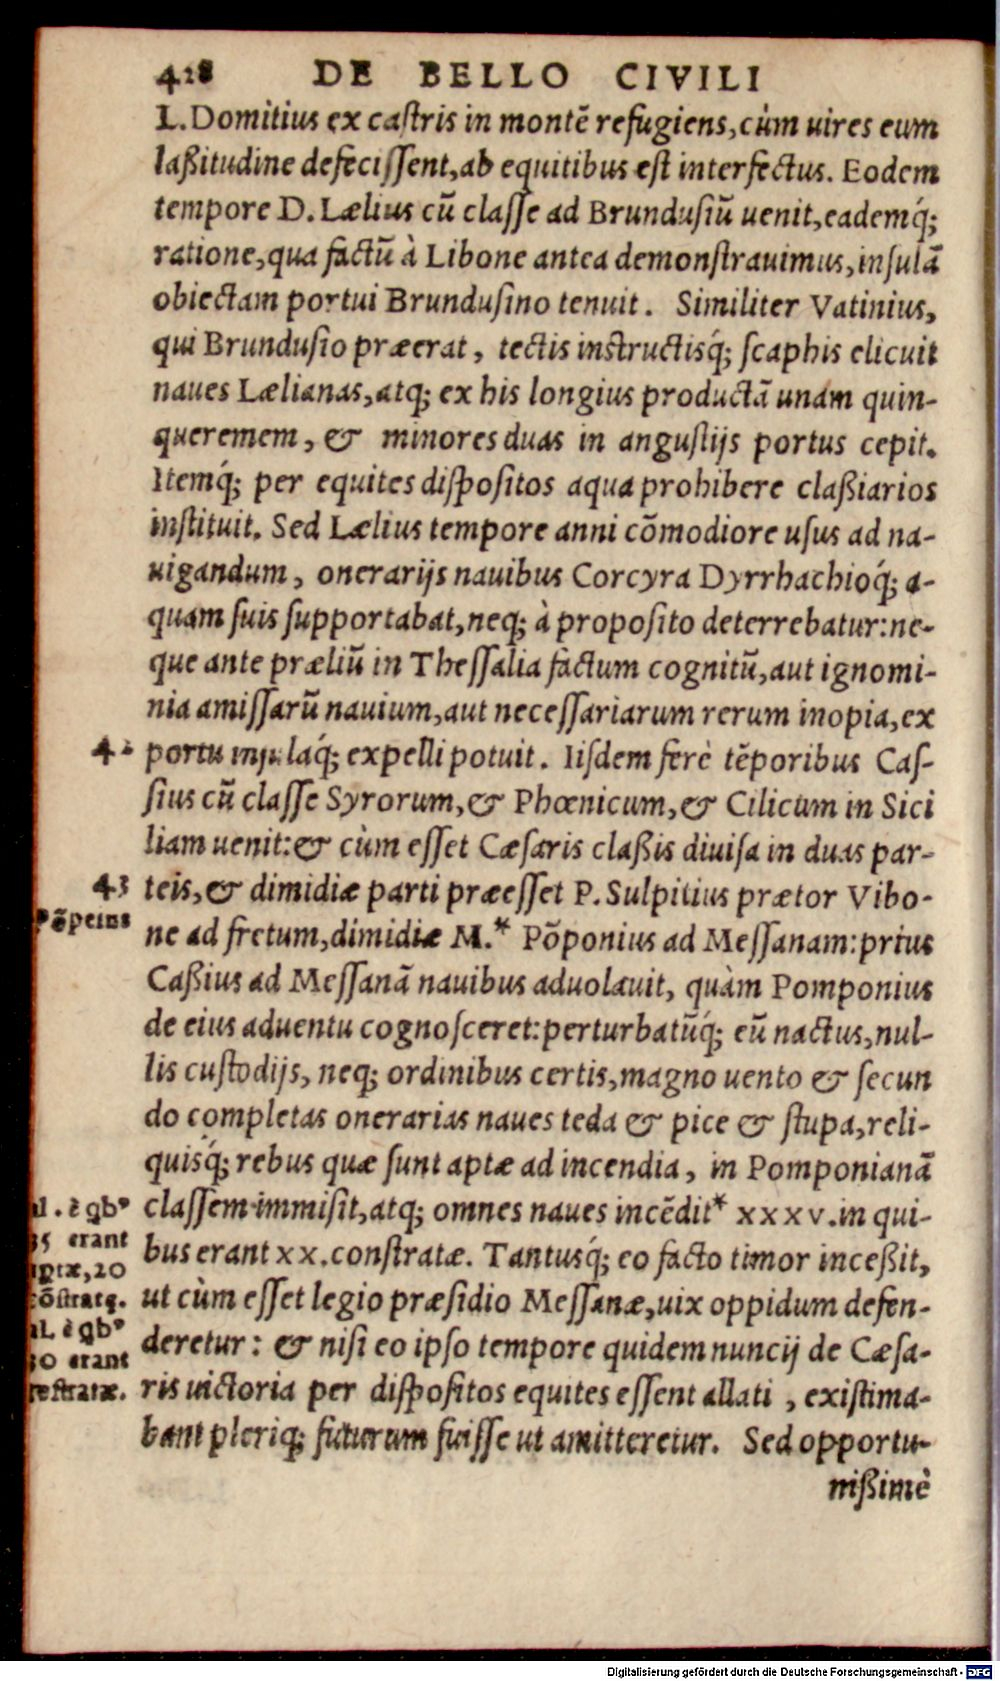 428 DE BELLO CIVILI
L. Domitius ex castris in montē refugiens, cùm uires eum
laßitudine defecissent, ab equitibus est interfectus. Eodem
tempore D. Lælius cū classe ad Brundusiū uenit, eademq́;
ratione, qua factū à Libone antea demonstrauimus, insulā
obiectam portui Brundusino tenuit. Similiter Vatinius,
qui Brundusio præerat, tectis instructisq́; scaphis elicuit
naues Lælianas, atq; ex his longius productā unam quin-
queremem, & minores duas in angustijs portus cepit.
Itemq́; per equites dispositos aqua prohibere claßiarios
instituit. Sed Lælius tempore anni cōmodiore usus ad na-
uigandum, onerarijs nauibus Corcyra Dyrrhachioq́; a-
quam suis supportabat, neq; à proposito deterrebatur: ne-
que ante præliū in Thessalia factum cognitū, aut ignomi-
nia amissarū nauium, aut necessariarum rerum inopia, ex
portu insulaq́; expelli potuit. Iisdem ferè tēporibus Cas-
sius cū classe Syrorum, & Phœnicum, & Cilicum in Sici
liam uenit: & cùm esset Cæsaris claßis diuisa in duas par-
43
teis, & dimidiæ parti præesset P. Sulpitius prætor Vibo-
Pōpeius
ne ad fretum, dimidiæ M.* Pōponius ad Messanam: prius
Caßius ad Messanā nauibus aduolauit, quàm Pomponius
de eius aduentu cognosceret: perturbatūq́; eū nactus, nul-
lis custodijs, neq; ordinibus certis, magno uento & secun
do completas onerarias naues teda & pice & stupa, reli-
quisq́; rebus quæ sunt aptæ ad incendia, in Pomponianā
classem immisit, atq; omnes naues incēdit* xxxv. in qui-
bus erant xx. constratæ. Tantusq́; eo facto timor inceßit,
ut cùm esset legio præsidio Messanæ, uix oppidum defen-
deretur: & nisi eo ipso tempore quidem nuncij de Cæsa-
ris uictoria per dispositos equites essent allati, existima-
bant pleriq; futurum fuisse ut amitteretur. Sed opportu-
nißimè
al. è qb⁹
35 erant
20
cōstratę.
al. è qb⁹
erant
Digitalisierung gefördert durch die Deutsche Forschungsgemeinschaft - DFG